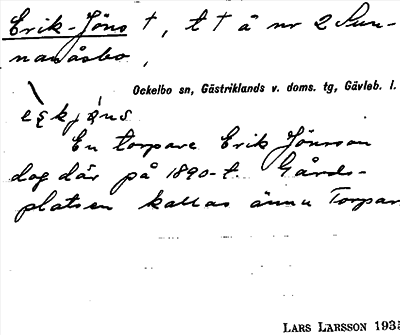 Erik-Jöns †, t † å nr 2 Sun-
nanåsbo,
Ockelbo sn, Gästriklands v. doms. tg, Gävleb. l.
En torpare Erik Jönsson
dog där på 1890-t. Gårds-
platsen kallas ännu Torpar
LARS LARSSON 1935